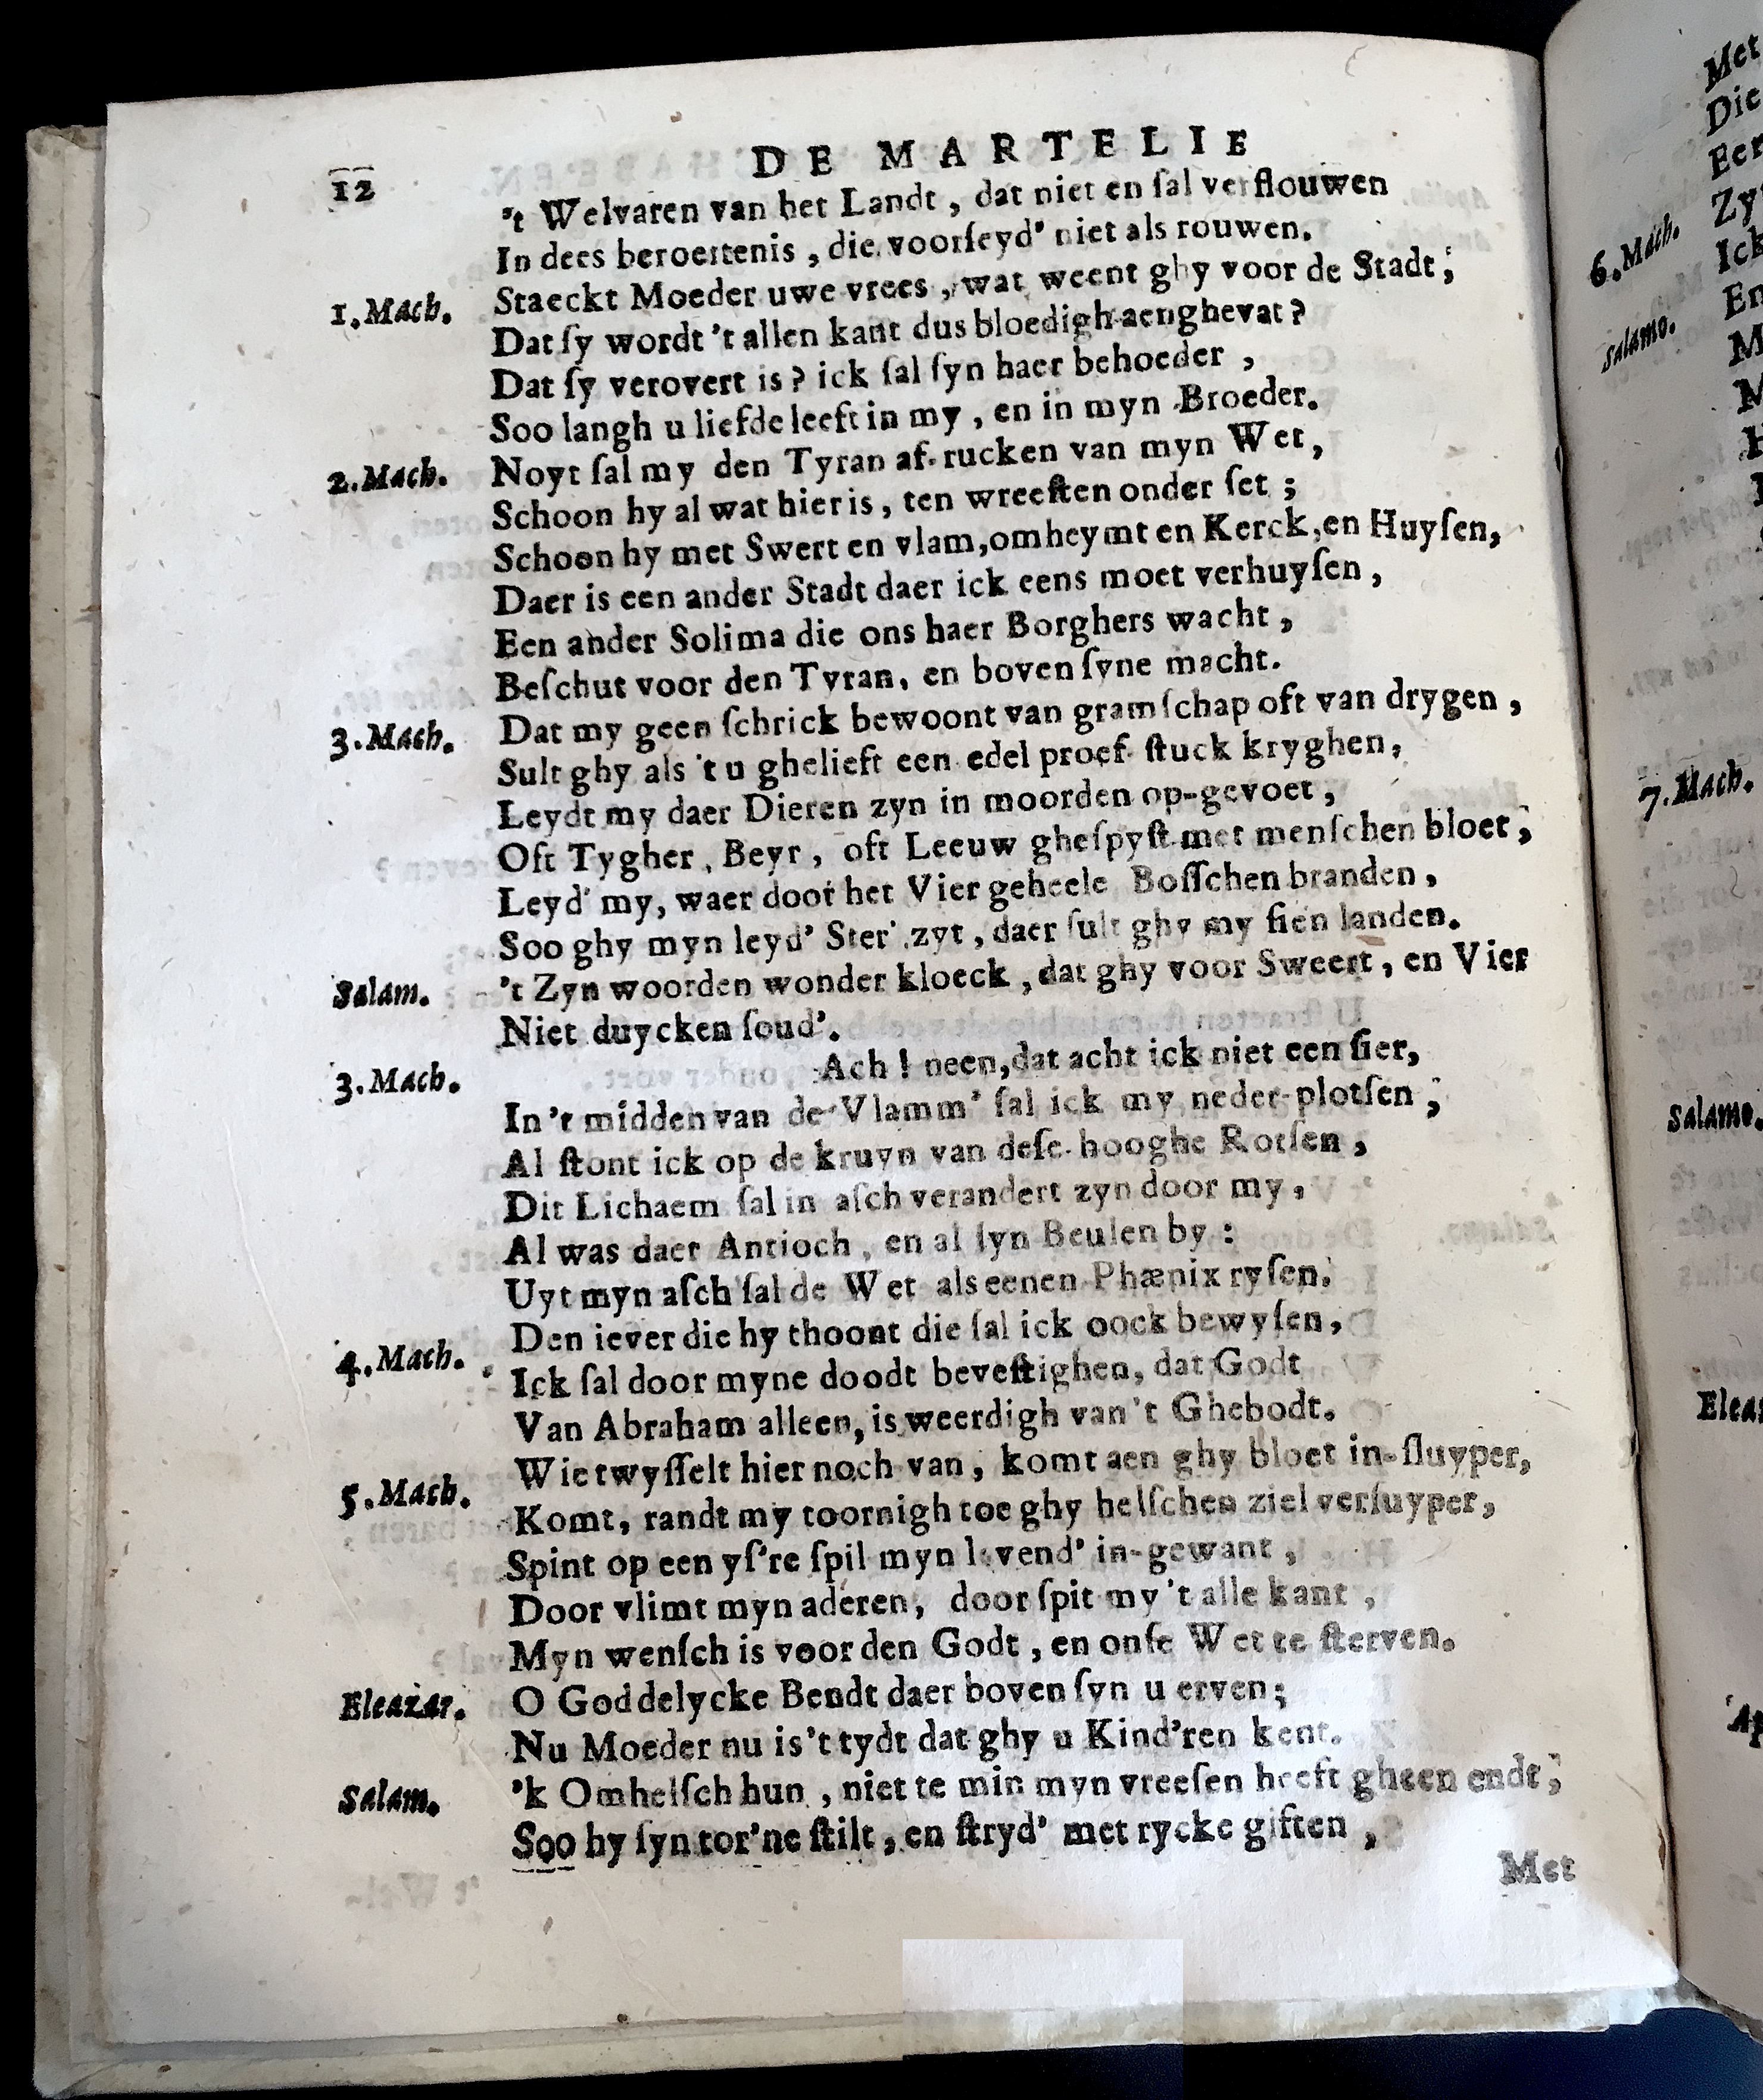 DE MARTELIE
12
't Welvaren van het Landt, dat niet en ſal verflouwen
In dees beroertenis, die voorſeyd' niet als rouwen.
1. Mach. Staeckt Moeder uwe vrees, wat weent ghy voor de Stadt;
Dat ſy wordt 't allen kant dus bloedigh aenghevat?
Dat ſy verovert is? ick ſal ſyn haer behoeder,
Soo langh u liefde leeft in my, en in myn Broeder.
2. Mach. Noyt ſal my den Tyran af-rucken van myn Wet,
Schoon hy al wat hier is, ten wreeſten onder ſet;
Schoon hy met Swert en vlam, omheymt en Kerck, en Huyſen,
Daer is een ander Stadt daer ick eens moet verhuyſen,
Een ander Solima die ons haer Borghers wacht,
Beſchut voor den Tyran, en boven ſyne macht.
3. Mach. Dat my geen ſchrick bewoont van gramſchap oft van drygen,
Sult ghy als 't u ghelieft een edel proef-ſtuck kryghen,
Leydt my daer Dieren zyn in moorden op-gevoet,
Oft Tygher, Beyr, oft Leeuw gheſpyſt met menſchen bloet;
Leyd' my, waer door het Vier geheele Boſſchen branden,
Soo ghy myn leyd' Ster' zyt, daer ſult ghy my ſien landen.
Salam. 't Zyn woorden wonder kloeck, dat ghy voor Sweert, en Vier
Niet duycken ſoud'.
3. Mach. Ach! neen, dat acht ick niet een ſier,
In 't midden van de Vlamm' ſal ick my neder-plotſen;
Al ſtont ick op de kruyn van deſe hooghe Rotſen,
Dit Lichaem ſal in aſch verandert zyn door my,
Al was daer Antioch, en al ſyn Beulen by:
Uyt myn aſch ſal de Wet als eenen Phænix ryſen.
4. Mach. Den iever die hy thoont die ſal ick oock bewyſen,
Ick ſal door myne doodt beveſtighen, dat Godt
Van Abraham alleen, is weerdigh van 't Ghebodt.
5. Mach. Wie twyſſelt hier noch van, komt aen ghy bloet in-ſluyper,
Komt, randt my toornigh toe ghy helſchen ziel verſuyper,
Spint op een yſ're ſpil myn levend' in-gewant,
Door vlimt myn aderen, door ſpit my 't alle kant,
Myn wenſch is voor den Godt, en onſe Wet te ſterven.
Eleazar. O Goddelycke Bendt daer boven ſyn u erven;
Nu Moeder nu is 't tydt dat ghy u Kind'ren kent.
Salam. 'k Omhelſch hun, niet te min myn vreeſen heeft gheen endt;
Soo hy ſyn tor'ne ſtilt, en ſtryd' met rycke giften,
Met
Met
Die
Zy
6. Mach.
Ick
En
Salamo.
7. Mach.
Salamo.
Elea